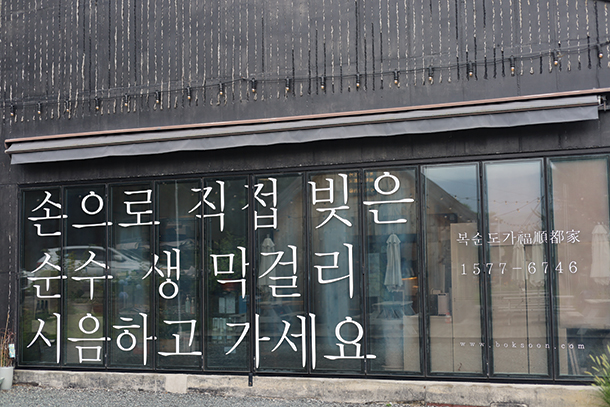 손으로 직접 빚은
순수 생 막걸리
시음하고 가세요
복순도가福順都家
1577-6746
www.boksoon.com